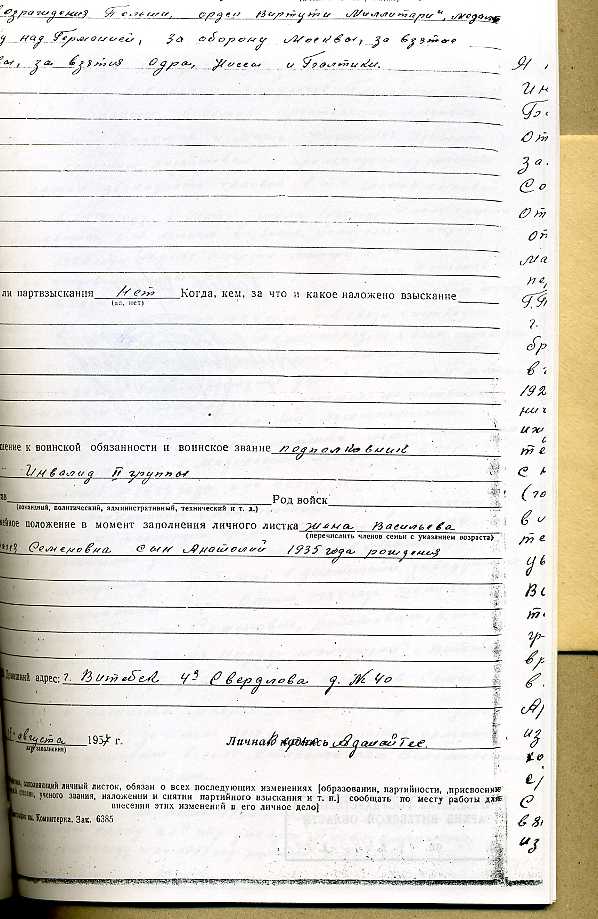 возрождения Польши, орден Виртути Миллитари", медали
у над Германией, за оборону Москвы, за взятие
вы, за взятия Одра, Ниссы и Балтики.
ли партвзыскания нет Когда, кем, за что и какое наложено взыскание
(да, нет)
шение к воинской обязанности и воинское звание подполковник
- Инвалид II группы
тав Род войск
(командный, политический, административный, технический и т. д.)
ейное положение в момент заполнения личного листка жена Васильева
(перечислить членов семьи с указанием возраста)
Семеновна сын Анатолий 1935 года рождения
Домашний адрес: г. Витебск Свердлова д. № 40
августа 1957 г. Личная подпись
заполнения)
заполняющий личный листок, обязан о всех последующих изменениях [образовании, партийности, присвоении
ученого звания, наложении и снятии партийного взыскания и т. п.] сообщать по месту работы для
внесения этих изменений в его личное дело]
им. Коминтерна. Зак. 6385
Я,
ин
от
за
со
от
оп
ма
пе,
г.
бр
в
192
нич
иж
те
с к
(го
в и
те
уь
Вс
т.
гр
вр
в.
из
с
из